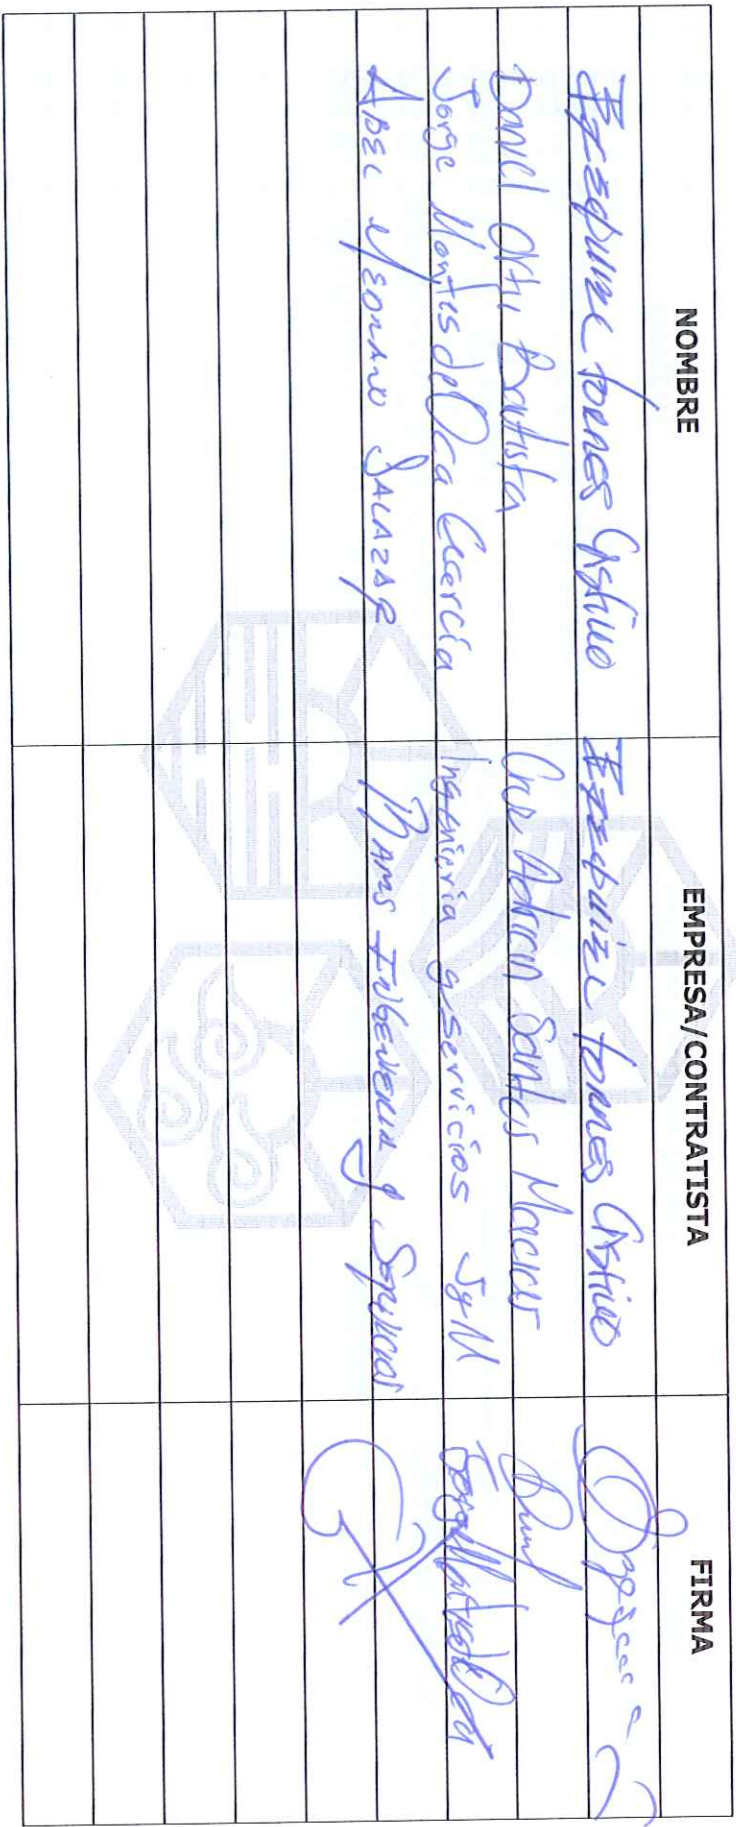 NOMBRE EMPRESA/CONTRATISTA FIRMA
Torres Castillo Torres Castillo
Daniel Bautista Adrian Santos Macias
Jorge Montes de Oca Garcia Ingenieria y servicios JyM
ABEL MEDRANO SALAZAR DAMS INGENIERIA y Servicios